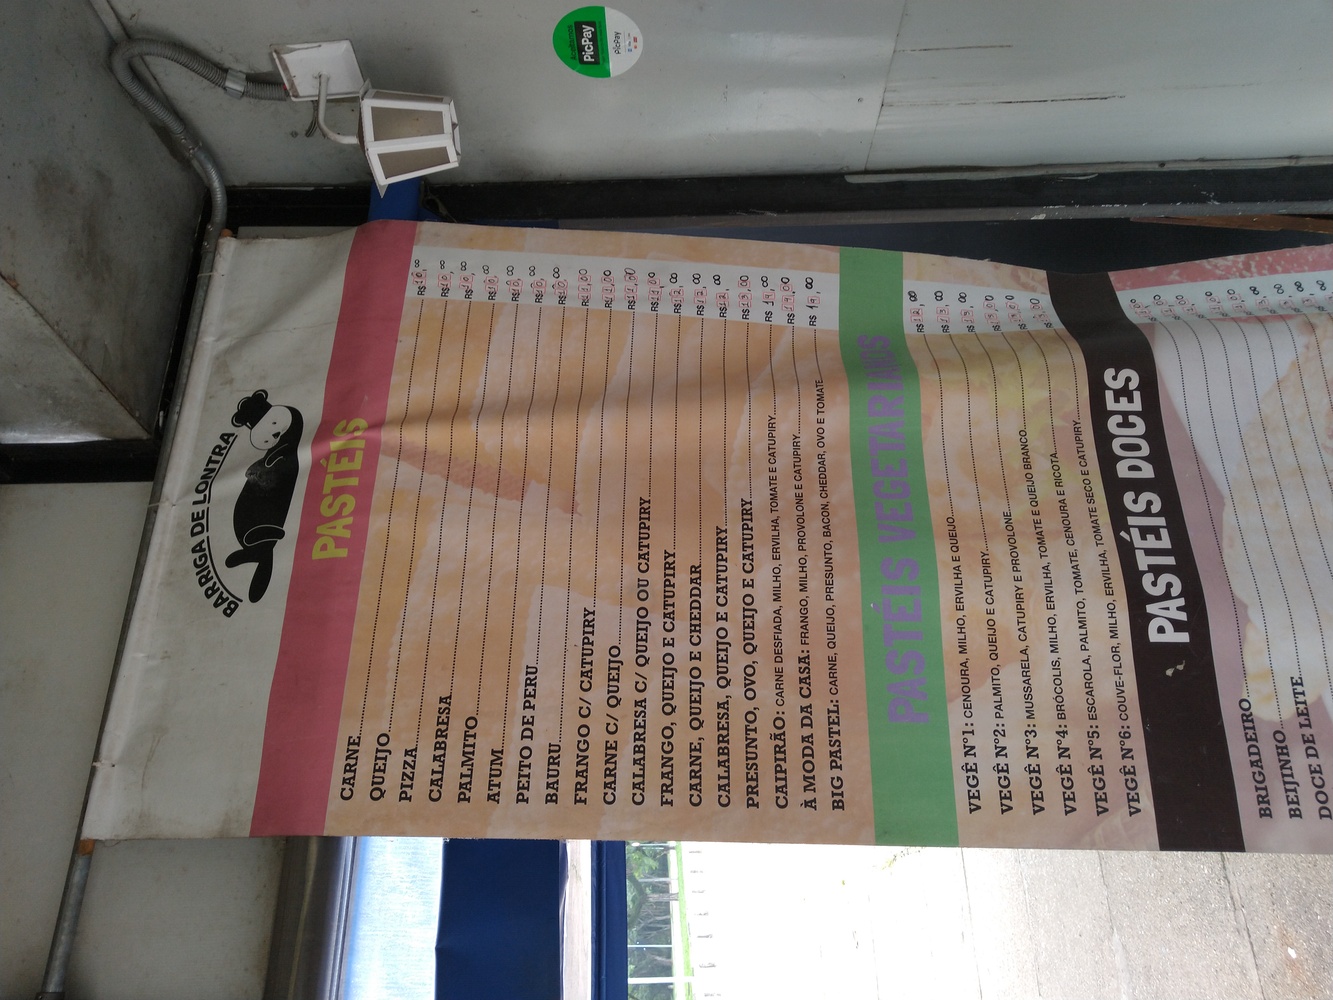 BARRIGA DE LONTRA
PASTÉIS
CARNE R$10,00
QUEIJO R$10,00
PIZZA R$10,00
CALABRESA R$10,00
PALMITO R$10,00
ATUM R$10,00
PEITO DE PERU R$10,00
BAURU R$11,00
FRANGO C/ CATUPIRY R$11,00
CARNE C/ QUEIJO R$11,00
CALABRESA C/ QUEIJO OU CATUPIRY R$11,00
FRANGO, QUEIJO E CATUPIRY R$12,00
CARNE, QUEIJO E CHEDDAR R$12,00
CALABRESA, QUEIJO E CATUPIRY R$12,00
PRESUNTO, OVO, QUEIJO E CATUPIRY R$13,00
CAIPIRÃO: CARNE DESFIADA, MILHO, ERVILHA, TOMATE E CATUPIRY R$
À MODA DA CASA: FRANGO, MILHO, PROVOLONE E CATUPIRY R$
BIG PASTEL: CARNE, QUEIJO, PRESUNTO, BACON, CHEDDAR, OVO E TOMATE R$
PASTÉIS VEGETARIANOS
VEGÊ Nº1: CENOURA, MILHO, ERVILHA E QUEIJO R$12,00
VEGÊ Nº2: PALMITO, QUEIJO E CATUPIRY R$13,00
VEGÊ Nº3: MUSSARELA, CATUPIRY E PROVOLONE R$13,00
VEGÊ Nº4: BRÓCOLIS, MILHO, ERVILHA, TOMATE E QUEIJO BRANCO R$
VEGÊ Nº5: ESCAROLA, PALMITO, TOMATE, CENOURA E RICOTA R$
VEGÊ Nº6: COUVE-FLOR, MILHO, ERVILHA, TOMATE SECO E CATUPIRY R$
PASTÉIS DOCES
BRIGADEIRO
BEIJINHO
DOCE DE LEITE
Aceitamos
PicPay
PicPay